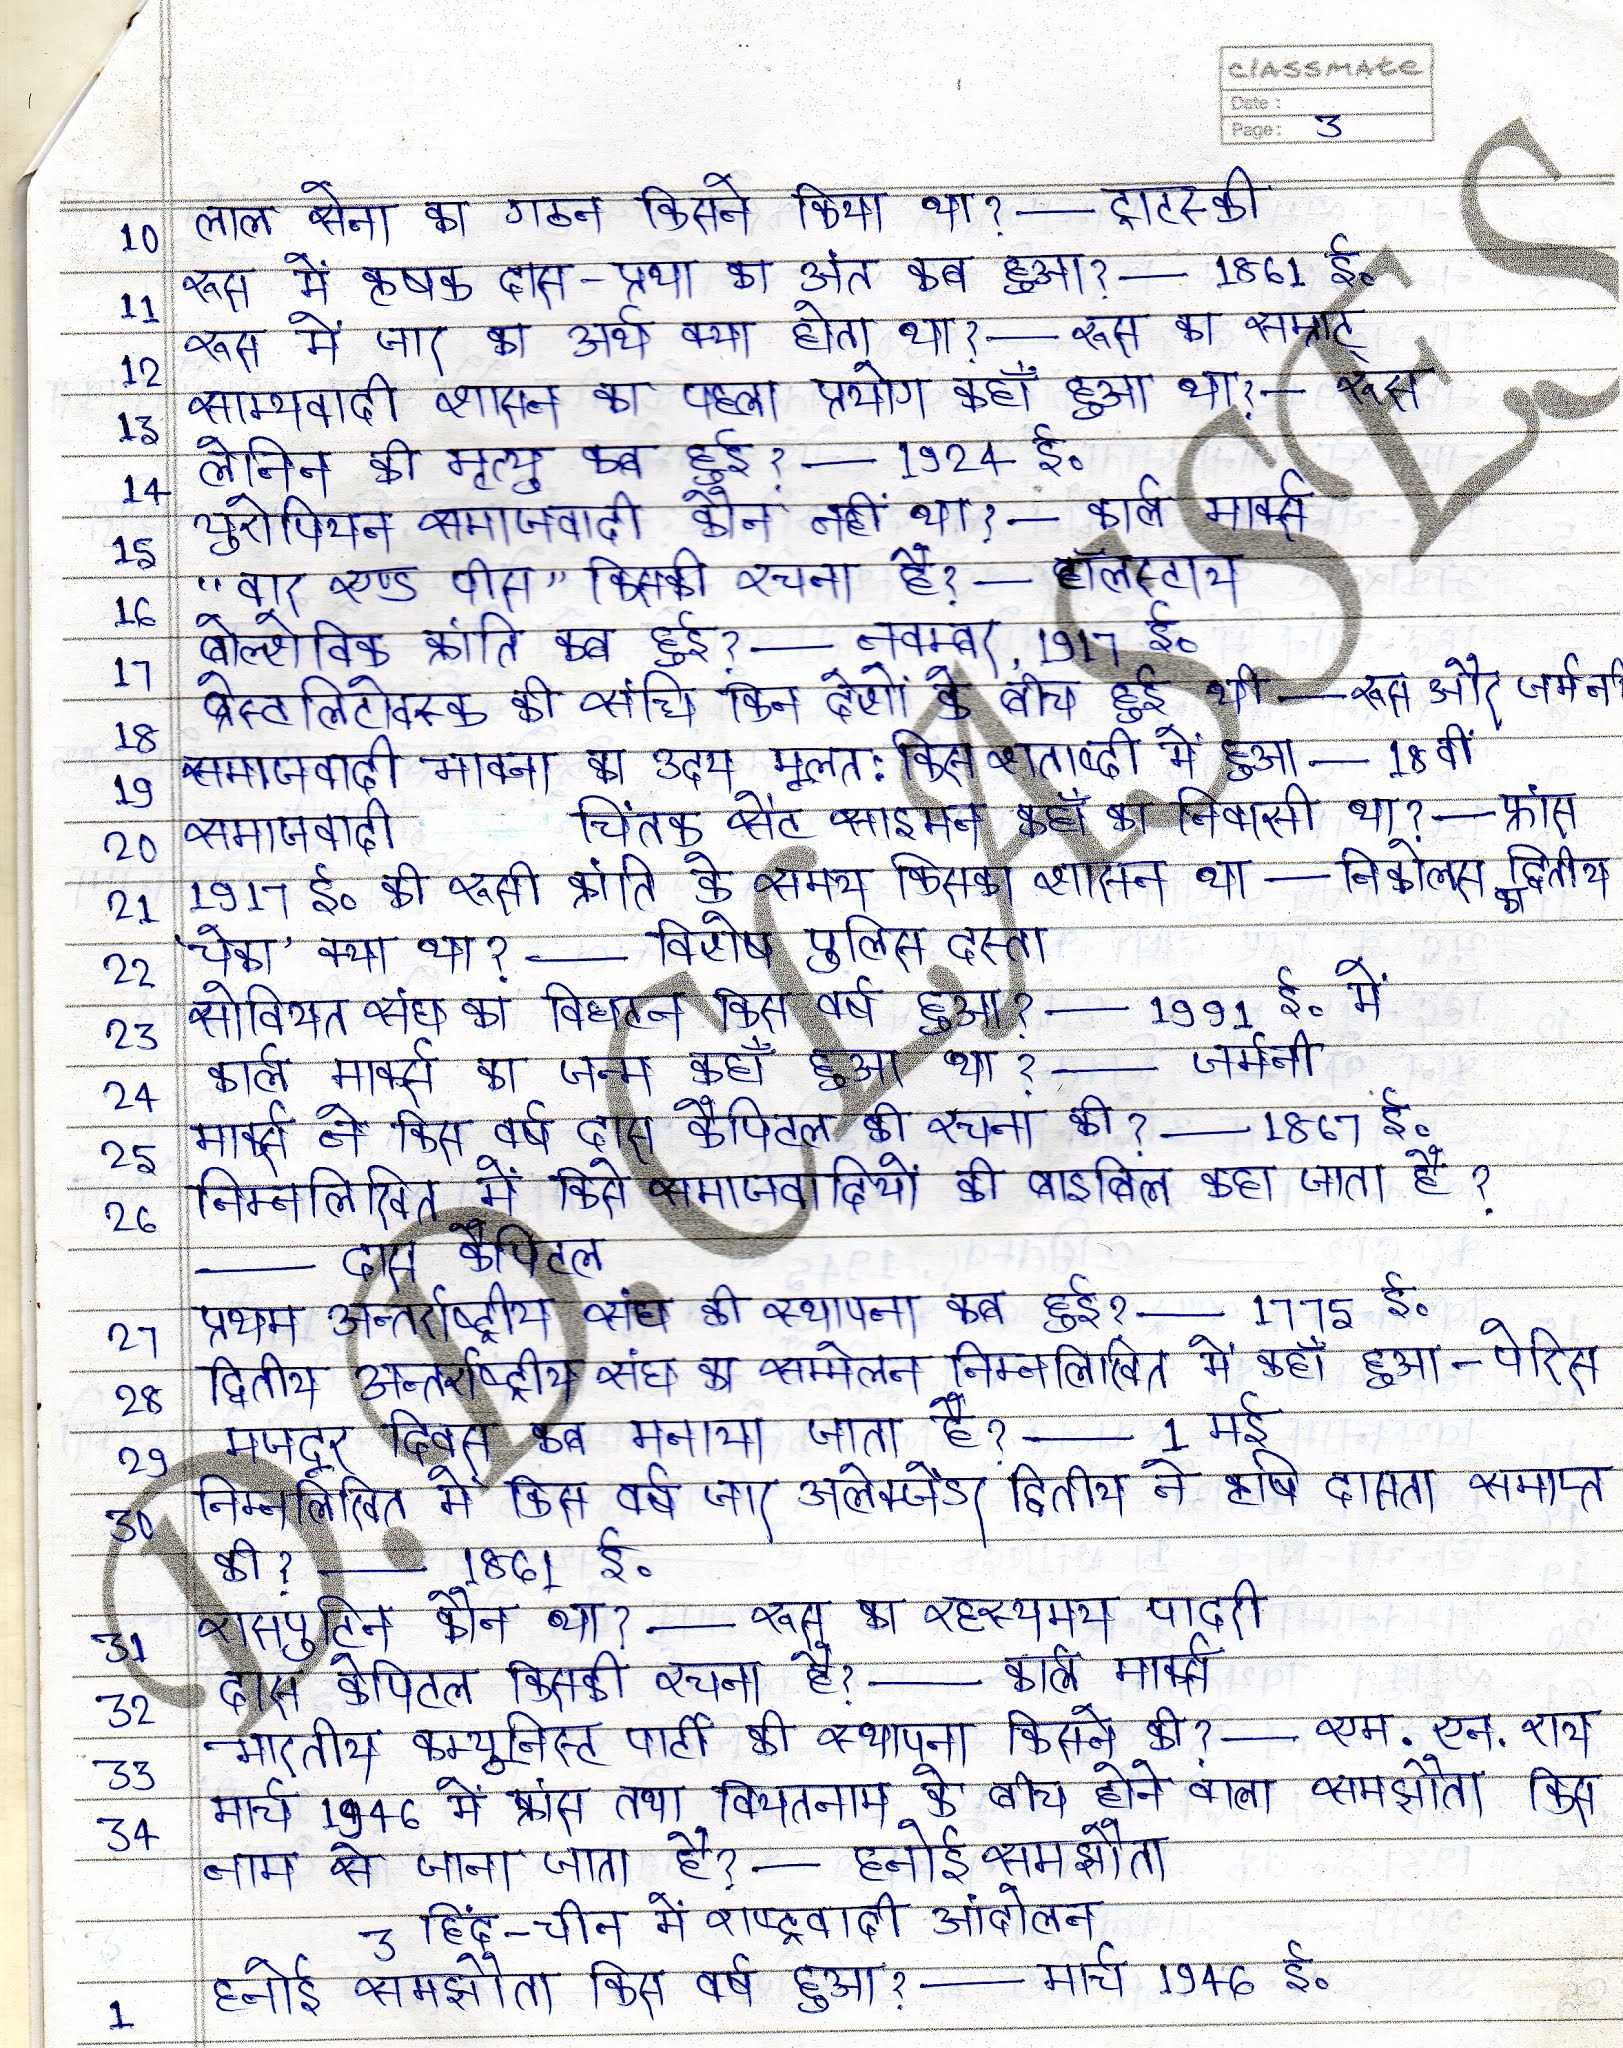 classmate
Date :
Page : 3
10 लाल सेना का गठन किसने किया था? — ट्राटस्की
11 रूस में कृषक दास-प्रथा का अंत कब हुआ? — 1861 ई०
12 रूस में जार का अर्थ क्या होता था? — रूस का सम्राट्
13 साम्यवादी शासन का पहला प्रयोग कहाँ हुआ था? — रूस
14 लेनिन की मृत्यु कब हुई? — 1924 ई०
15 युरोपियन समाजवादी कौन नहीं था? — कार्ल मार्क्स
16 "वार एण्ड पीस" किसकी रचना है? — टॉलस्टाय
17 बोल्शेविक क्रांति कब हुई? — नवम्बर, 1917 ई०
18 ब्रेस्टलिटोवस्क की संधि किन देशों के बीच हुई थी — रूस और जर्मनी
19 समाजवादी भावना का उदय मूलत: किस शताब्दी में हुआ — 18वीं
20 समाजवादी चिंतक सेंट साइमन कहाँ का निवासी था? — फ्रांस
21 1917 ई० की रूसी क्रांति के समय किसका शासन था — निकोलस द्वितीय का
22 'चेका' क्या था? — विशेष पुलिस दस्ता
23 सोवियत संघ का विघटन किस वर्ष हुआ? — 1991 ई. में
24 कार्ल मार्क्स का जन्म कहाँ हुआ था? — जर्मनी
25 मार्क्स ने किस वर्ष दास कैपिटल की रचना की? — 1867 ई०
26 निम्नलिखित में किसे समाजवादियों की बाइबिल कहा जाता है?
— दास कैपिटल
27 प्रथम अन्तर्राष्ट्रीय संघ की स्थापना कब हुई? — 1775 ई०
28 द्वितीय अन्तर्राष्ट्रीय संघ का सम्मेलन निम्नलिखित में कहाँ हुआ - पेरिस
29 मजदूर दिवस कब मनाया जाता है? — 1 मई
30 निम्नलिखित में किस वर्ष जार अलेक्जेंडर द्वितीय ने कृषि दासता समाप्त
की? — 1861 ई०
31 रासपुटिन कौन था? — रूस का रहस्यमय पादरी
32 दास केपिटल किसकी रचना है? — कार्ल मार्क्स
33 भारतीय कम्युनिस्ट पार्टी की स्थापना किसने की? — एम. एन. राय
34 मार्च 1946 में फ्रांस तथा वियतनाम के बीच होने वाला समझौता किस
नाम से जाना जाता है? — हनोई समझौता
3 हिंद-चीन में राष्ट्रवादी आंदोलन
1 हनोई समझौता किस वर्ष हुआ? — मार्च 1946 ई०
D. D. CLASSES